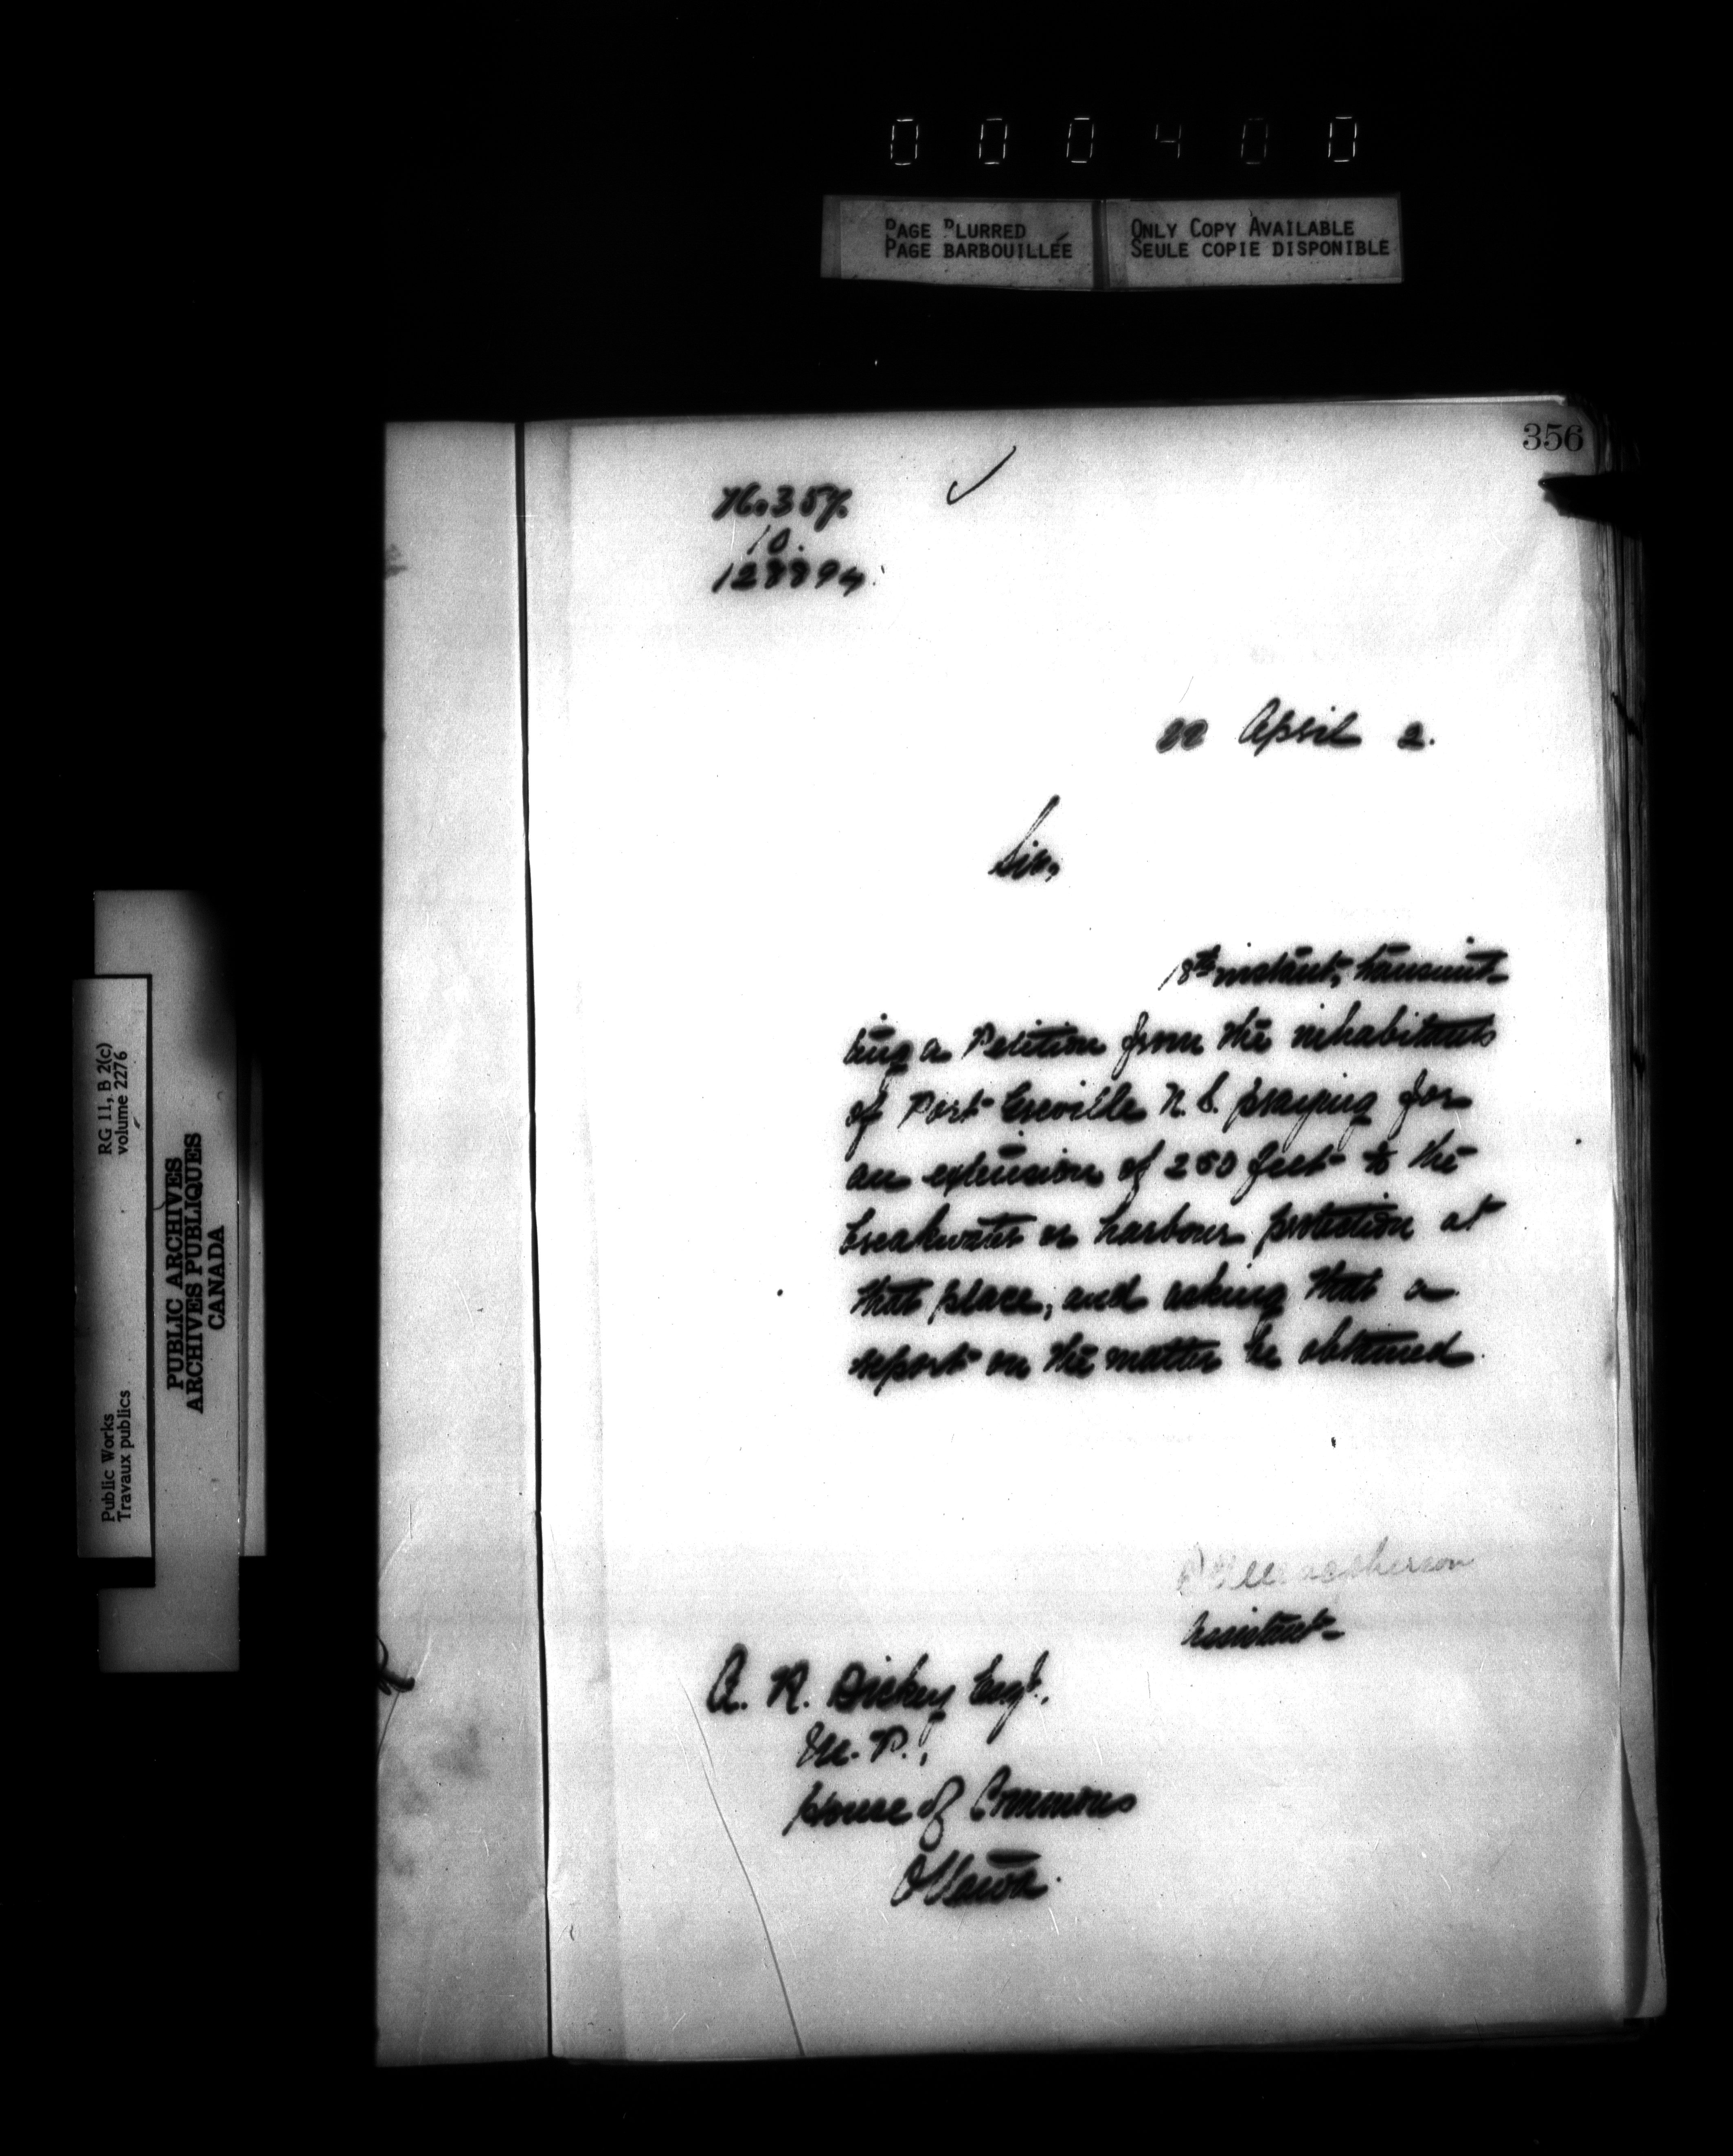 0 0 0 4 0 0
PAGE BLURRED
PAGE BARBOUILLÉE
ONLY COPY AVAILABLE
SEULE COPIE DISPONIBLE
356
No. 357.
10.
128894
22 April 2.
Sir,
18th instant, transmit-
ting a Petition from the inhabitants
of Port Greville N.S. praying for
an extension of 250 feet to the
breakwater or harbour protection at
that place, and asking that a
report on the matter be obtained
Macpherson
Assistant
A. R. Dickey Esqr.
M. P.,
House of Commons
Ottawa.
RG 11, B 2(c)
volume 2276
Public Works
Travaux publics
PUBLIC ARCHIVES
ARCHIVES PUBLIQUES
CANADA